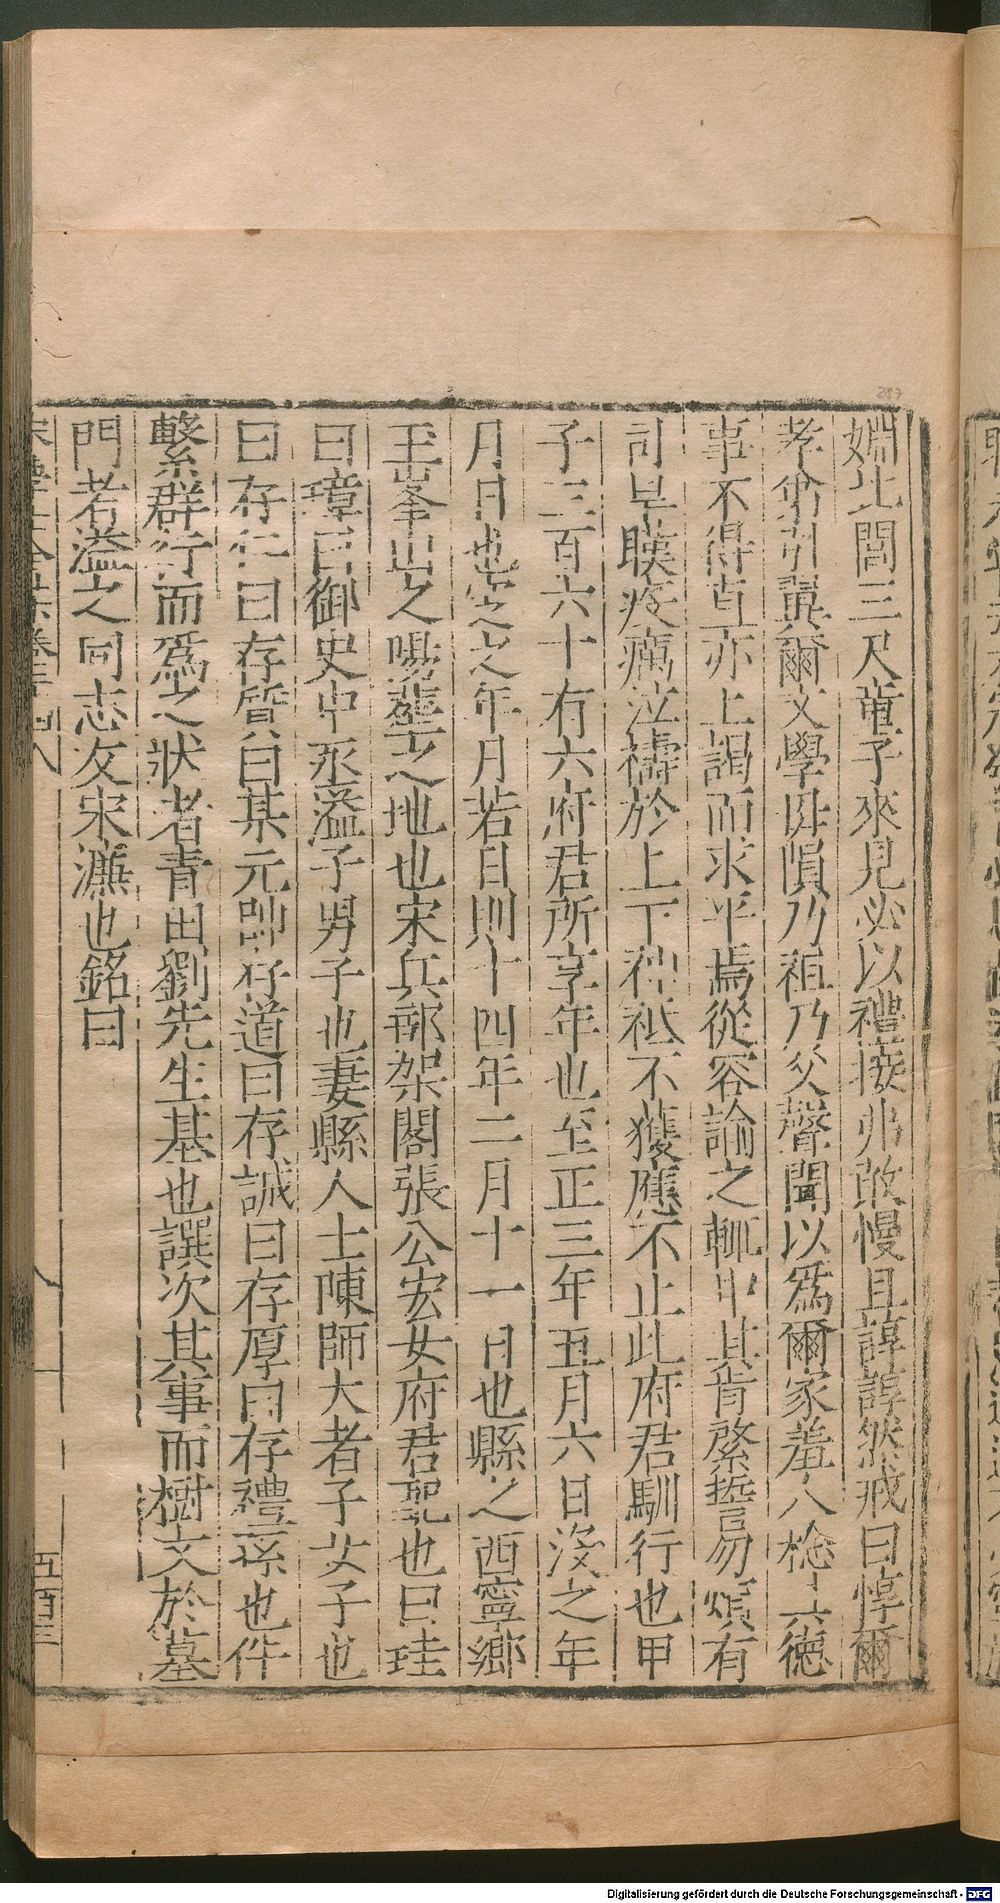 婣比閭三尺童子來見必以禮接弗敢慢且諄諄然戒曰惇爾
孝弟引翼爾文學毋隕乃祖乃父聲聞以爲爾家羞人稔其德
事不得直亦上謁而求平焉從容論之輒中其肯綮誓勿煩有
司旱暵疫癘泣禱於上下神祇不獲應不止此府君馴行也甲
子三百六十有六府君所享年也至正三年五月六日沒之年
月日也窆之年月若日則十四年二月十一日也縣之西寧鄉
玉峯山之場葬之地也宋兵部架閣張公宏女府君配也曰珪
曰璋曰御史中丞溢子男子也妻縣人士陳師大者子女子也
曰存仁曰存質曰某元帥存道曰存誠曰存厚曰存禮孫也件
繫群行而爲之狀者青田劉先生基也譔次其事而樹文於墓
門者溢之同志友宋濂也銘曰
五百三
Digitalisierung gefördert durch die Deutsche Forschungsgemeinschaft - DFG